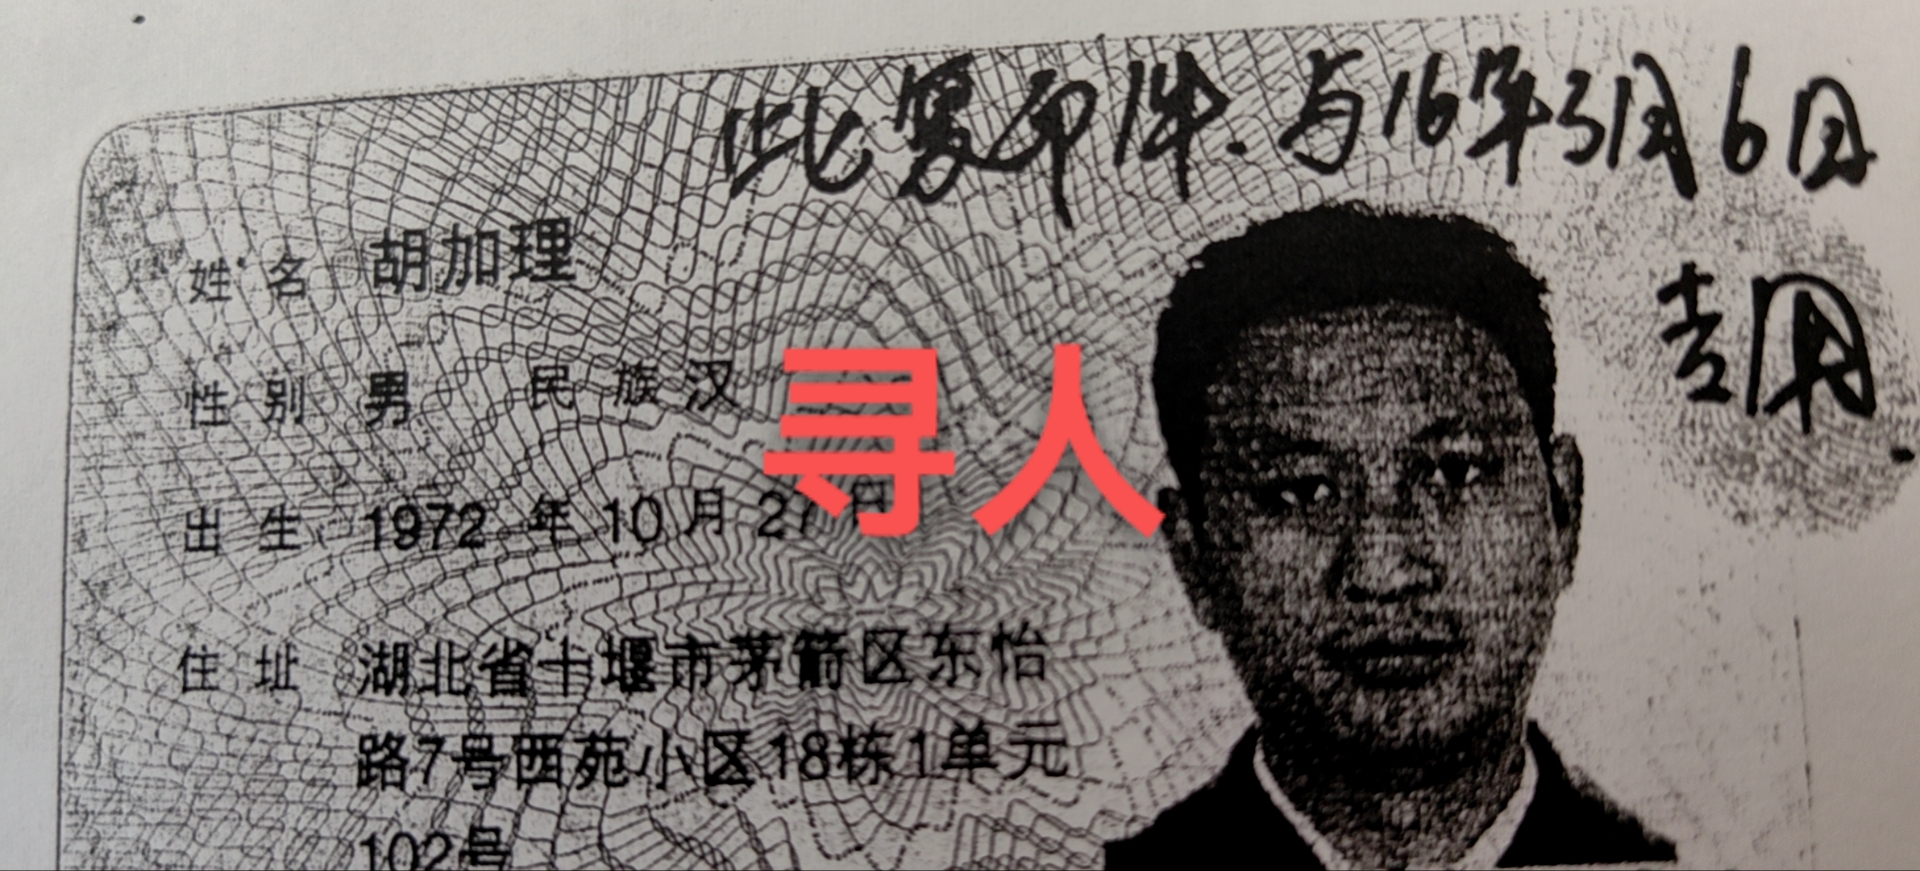 此复印件.与16年3月6日
姓名 胡加理
性别 男 民族汉
寻人
出生 1972年10月27日
住址 湖北省十堰市茅箭区东怡
路7号西苑小区18栋1单元
102号